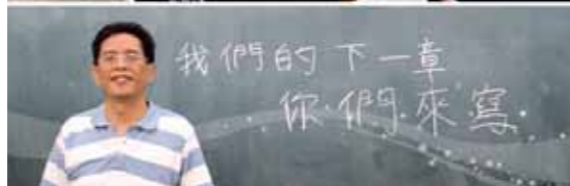 我們的下一章
你·們·來·寫·